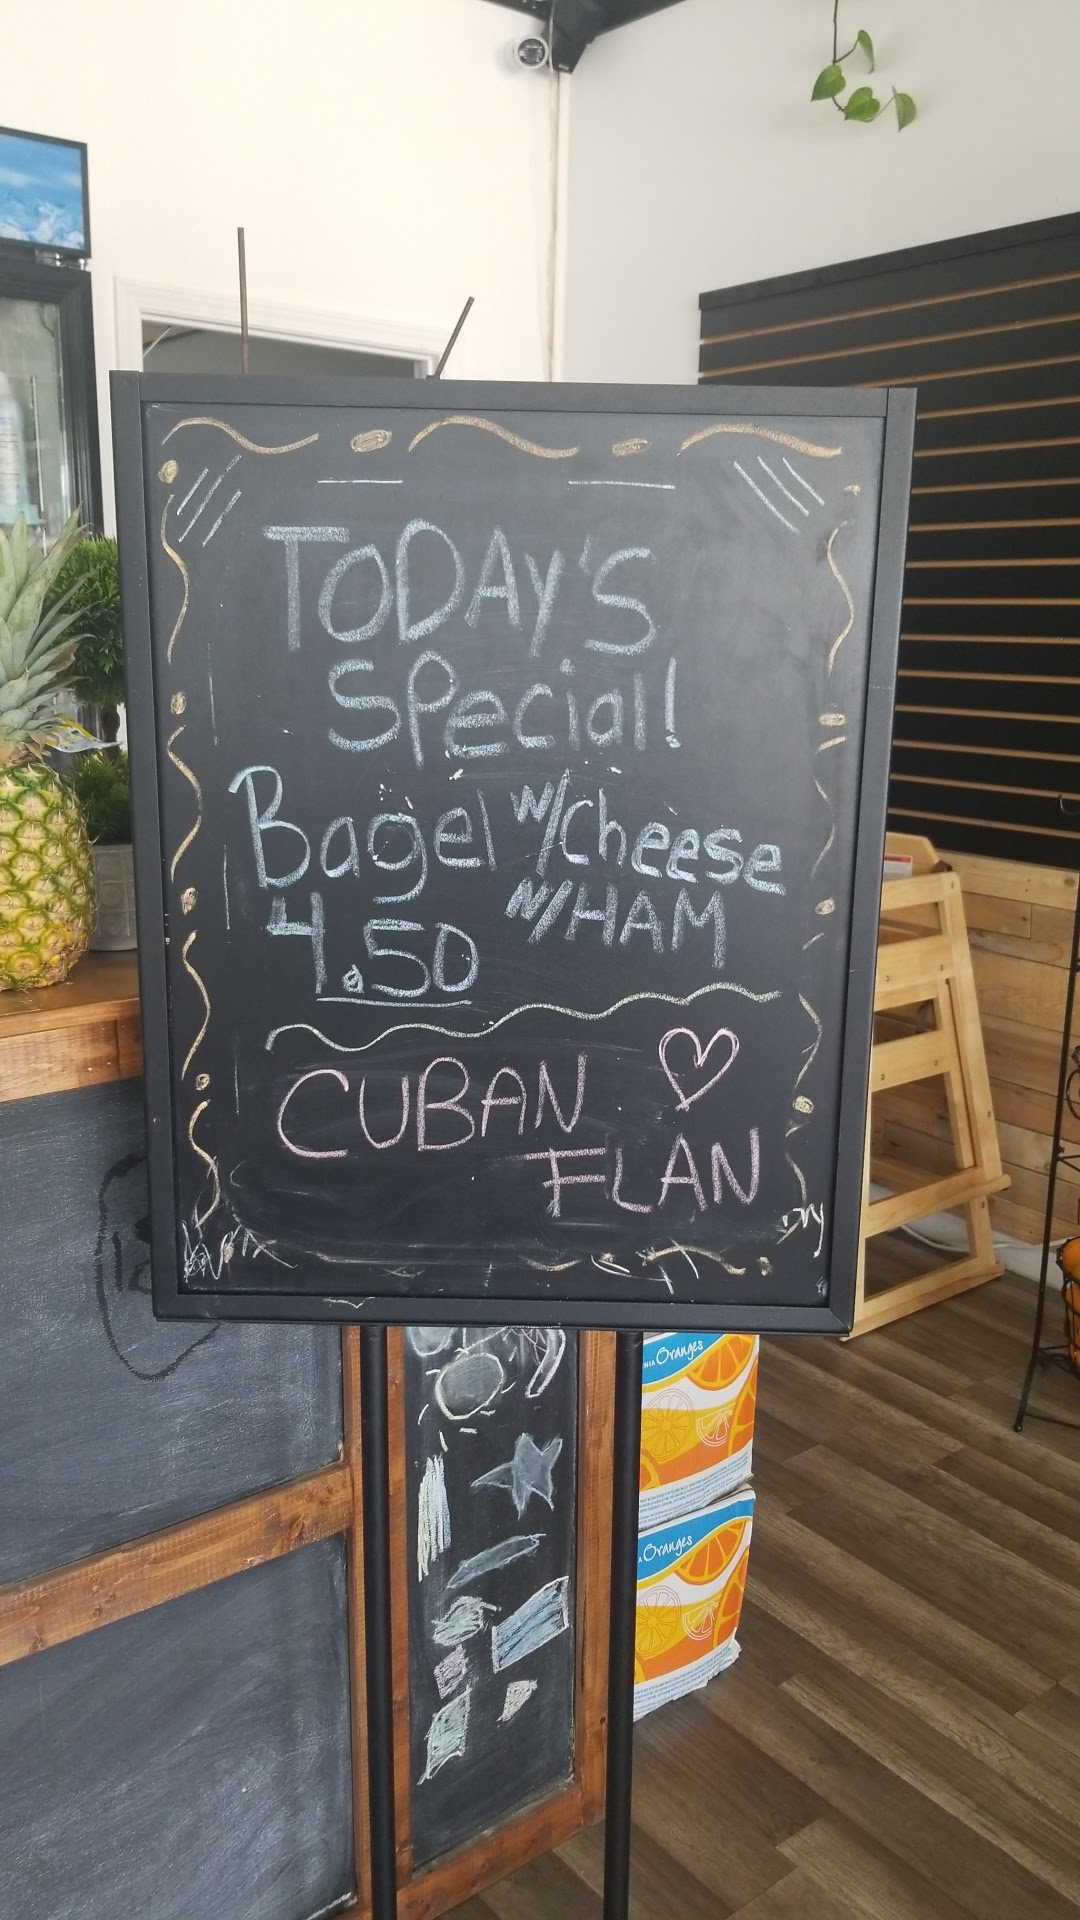 TODAY'S
SPecial!
Bagel w/Cheese
4.50 W/HAM
CUBAN
FLAN
Oranges
Oranges